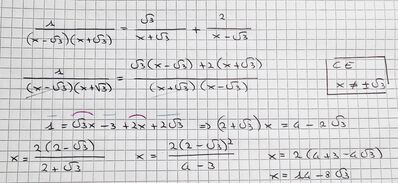 1/((x-√3)(x+√3)) = √3/(x+√3) + 2/(x-√3)
1/((x-√3)(x+√3)) = (√3(x-√3)+2(x+√3))/((x+√3)(x-√3))
CE
x ≠ ±√3
1 = √3x - 3 + 2x + 2√3 ⇒ (2+√3)x = 4 - 2√3
x = 2(2-√3)/(2+√3) x = 2(2-√3)²/(4-3) x = 2(4+3-4√3)
x = 14 - 8√3